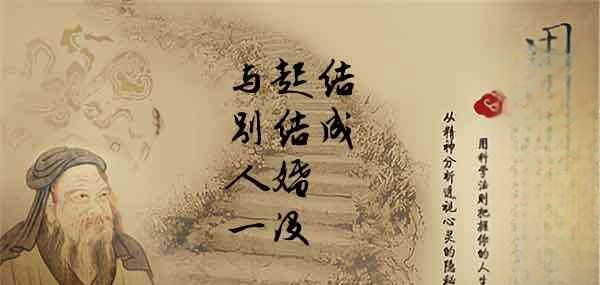 与别人一
起结婚没
结成
用科学法则把握你的人生
从精神分析透视心灵的隐秘